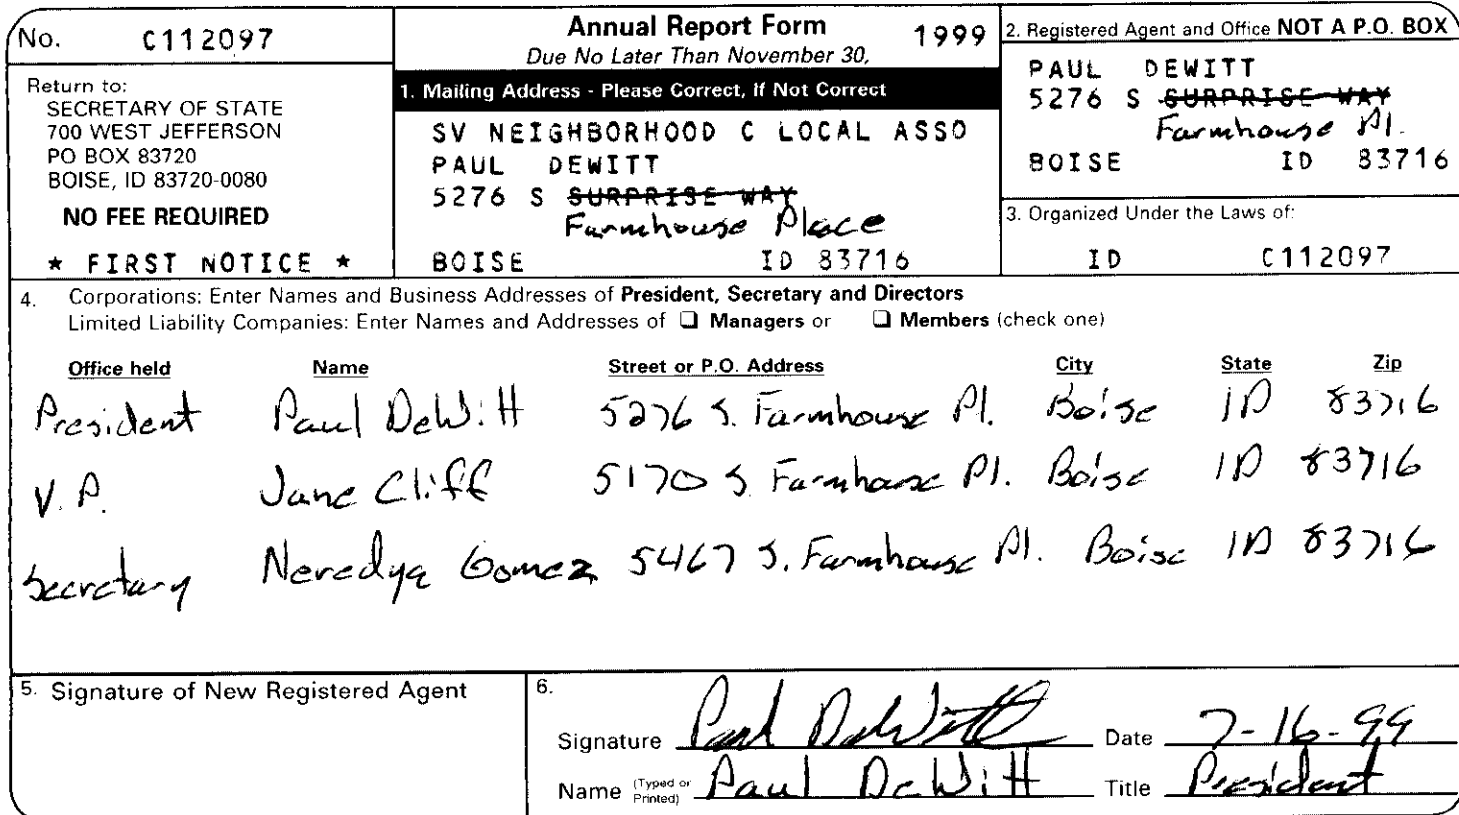 No. C112097
Return to:
SECRETARY OF STATE
700 WEST JEFFERSON
PO BOX 83720
BOISE, ID 83720-0080
NO FEE REQUIRED
* FIRST NOTICE *
Annual Report Form 1999
Due No Later Than November 30,
1. Mailing Address - Please Correct, If Not Correct
SV NEIGHBORHOOD C LOCAL ASSO
PAUL DEWITT
5276 S SURPRISE WAY
Farmhouse Place
BOISE ID 83716
2. Registered Agent and Office NOT A P.O. BOX
PAUL DEWITT
5276 S SURPRISE WAY
Farmhouse Pl.
BOISE ID 83716
3. Organized Under the Laws of:
ID C112097
4. Corporations: Enter Names and Business Addresses of President, Secretary and Directors
Limited Liability Companies: Enter Names and Addresses of ❑ Managers or ❑ Members (check one)
Office held Name Street or P.O. Address City State Zip
President Paul DeWitt 5276 S. Farmhouse Pl. Boise ID 83716
V.P. Jane Cliff 5170 S Farmhouse Pl. Boise ID 83716
Secretary Neredya Gomez 5467 S. Farmhouse Pl. Boise ID 83716
5. Signature of New Registered Agent
6.
Signature Paul DeWitt Date 7-16-99
Name (Typed or Printed) Paul DeWitt Title President